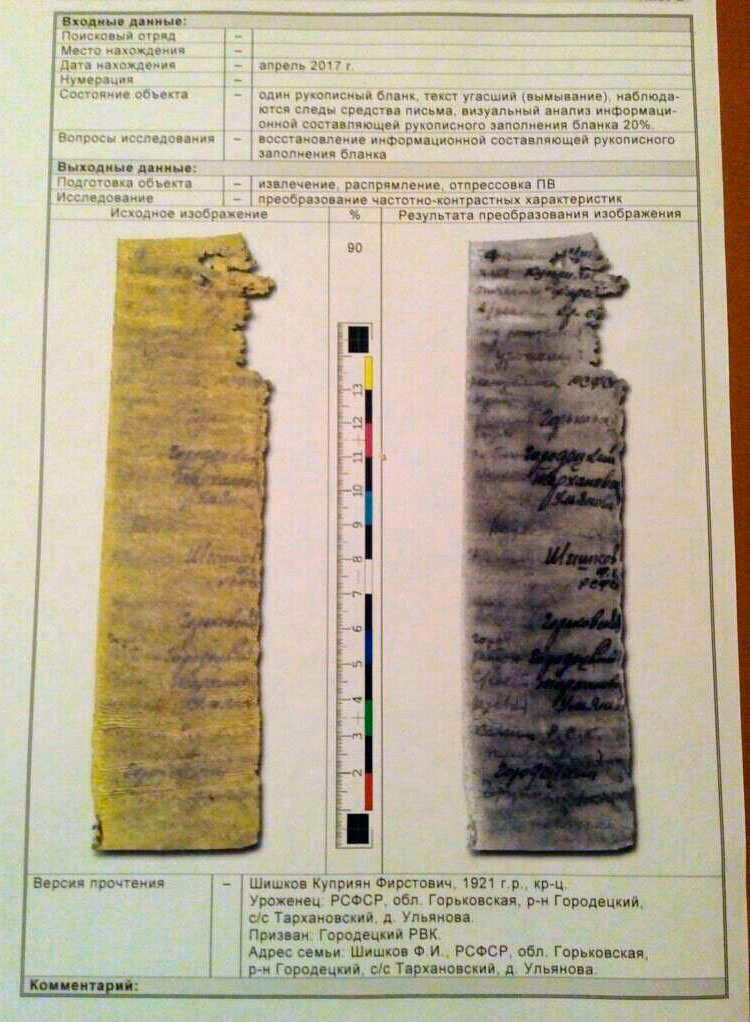 Входные данные:
Поисковый отряд –
Место нахождения –
Дата нахождения – апрель 2017 г.
Нумерация –
Состояние объекта – один рукописный бланк, текст угасший (вымывание), наблюда-
ются следы средства письма, визуальный анализ информаци-
онной составляющей рукописного заполнения бланка 20%.
Вопросы исследования – восстановление информационной составляющей рукописного
заполнения бланка
Выходные данные:
Подготовка объекта – извлечение, распрямление, отпрессовка ПВ
Исследование – преобразование частотно-контрастных характеристик
Исходное изображение % Результата преобразования изображения
90
13
12
11
10
9
8
7
6
5
4
3
2
РСФС
Горьков
Городецкий
Тархановс
Ульянова
Шишков
РСФС
Горьковская
Городецкий
Ульян
Городецкий
Версия прочтения – Шишков Куприян Фирстович, 1921 г.р., кр-ц.
Уроженец: РСФСР, обл. Горьковская, р-н Городецкий,
с/с Тархановский, д. Ульянова.
Призван: Городецкий РВК.
Адрес семьи: Шишков Ф.И., РСФСР, обл. Горьковская,
р-н Городецкий, с/с Тархановский, д. Ульянова.
Комментарий: